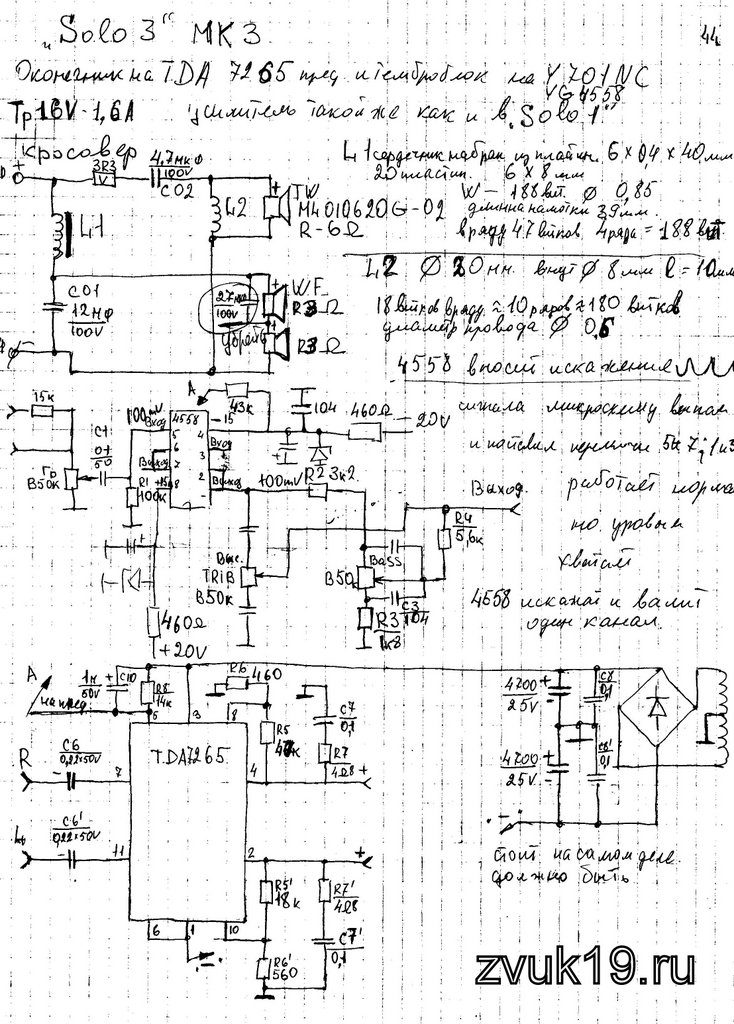 „Solo 3" MK3
44
Оконечник на TDA 7265 пред и темброблок на Y701NC
YG4558
Тр 16V-1,6A усилитель такой же как и в „Solo 1"
кросовер
3R3
V
4,7мкф
100V
C02
L1 сердечник набран из пластин. 6×0,4×40мм
20 пластин. 6×8мм
W - 188вит. ⌀ 0,85
длинна намотки 39мм.
в ряду 47 витков 4 ряда = 188 вит
L1
L2
TW
M4010620G-02
R-6Ω
L2 ⌀ 20мм. внут ⌀ 8мм l=10мм
18 витков в ряду ≈ 10 рядов ≈ 180 витков
диаметр провода ⌀ 0,6
C01
12мф
100V
27мф
100V
убрать
WF
R3Ω
R3Ω
4558 вносит искажения
сигнала микросхему выпаял
и поставил перемычки 5и7; 1и3
работает норма
но уровня
хватает
4558 искажает и валит
один канал.
15к
100mV
Вход
4558
A
43к
104
460Ω
-20V
C1
0,1
50
B50к
R1
100к
5
6
7
8
Выход
+15
-15
4
3
2
Вход
Выход
100mV
R2 3к2
Выход.
R4
5,6к
Bass
B50к
C3
104
R3
1к8
Выс.
TRIB
B50к
460Ω
+20V
A
на пред
1м
50V
C10
R8
14к
5
3
8
R6 460
R5
47к
C7
0,1
R7
4Ω8
R
C6
0,22×50V
7
TDA7265
4
L
C6'
0,22×50V
11
2
6
1
10
R5'
18к
R7'
4Ω8
C7'
0,1
R6'
560
4700
25V
C8
0,1
4700
25V
C8'
0,1
стоит на самом деле
должно быть
zvuk19.ru